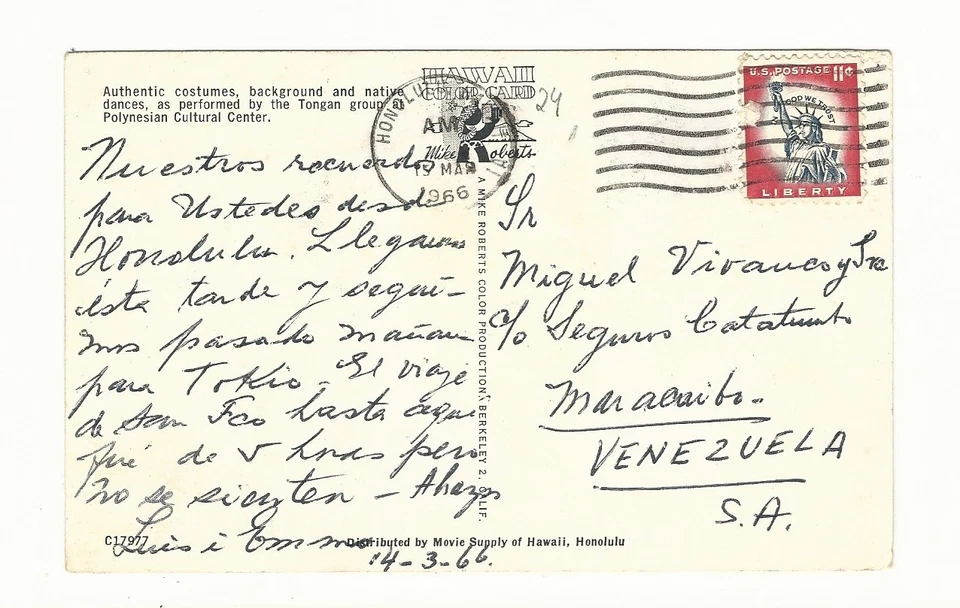 Authentic costumes, background and native
dances, as performed by the Tongan group at
Polynesian Cultural Center.
HAWAII
COLOR CARD
Mike Roberts
HONOLULU
AM
15 MAR
1966
24
U.S. POSTAGE 11¢
IN GOD WE TRUST
LIBERTY
Nuestros recuerdos
para Ustedes desde
Honolulu. Llegamos
ésta tarde y segui-
mos pasado mañana
para Tokio. El viaje
de San Fco hasta aqui
fué de 5 horas pero
no se sienten -
Luis i Emma
14-3-66.
A MIKE ROBERTS COLOR PRODUCTION, BERKELEY 2, CALIF.
Sr
Miguel Vivanco y Sra
c/o Seguros Catatumbo
Maracaibo.-
VENEZUELA
S.A.
C17977
Distributed by Movie Supply of Hawaii, Honolulu